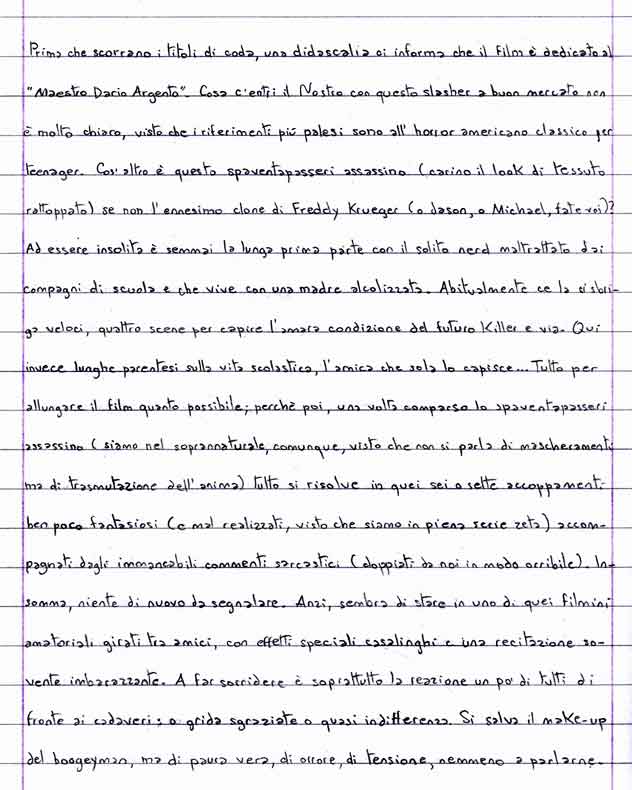 Prima che scorrano i titoli di coda, una didascalia ci informa che il film è dedicato al
"Maestro Dario Argento". Cosa c'entri il Nostro con questo slasher a buon mercato non
è molto chiaro, visto che i riferimenti più palesi sono all'horror americano classico per
teenager. Cos'altro è questo spaventapasseri assassino (carino il look di tessuto
rattoppato) se non l'ennesimo clone di Freddy Krueger (o Jason, o Michael, fate voi)?
Ad essere insolita è semmai la lunga prima parte con il solito nerd maltrattato dai
compagni di scuola e che vive con una madre alcolizzata. Abitualmente ce la si sbri-
ga veloci, quattro scene per capire l'amara condizione del futuro killer e via. Qui
invece lunghe parentesi sulla vita scolastica, l'amica che sola lo capisce... Tutto per
allungare il film quanto possibile; perchè poi, una volta comparso lo spaventapasseri
assassino (siamo nel soprannaturale, comunque, visto che non si parla di mascheramenti
ma di trasmutazione dell'anima) tutto si risolve in quei sei o sette accoppamenti
ben poco fantasiosi (e mal realizzati, visto che siamo in piena serie zeta) accom-
pagnati dagli immancabili commenti sarcastici (doppiati da noi in modo orribile). In-
somma, niente di nuovo da segnalare. Anzi, sembra di stare in uno di quei filmini
amatoriali girati tra amici, con effetti speciali casalinghi e una recitazione so-
vente imbarazzante. A far sorridere è soprattutto la reazione un po' di tutti di
fronte ai cadaveri: o grida sgraziate o quasi indifferenza. Si salva il make-up
del boogeyman, ma di paura vera, di orrore, di tensione, nemmeno a parlarne.